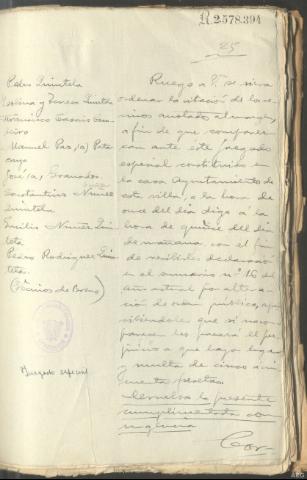 R.2.578.394
25
Pedro Quintela
Carolina y Teresa Quintela
Manuel Paz, (a) Pata
José (a) Granador
Constantino Nuñez
Quintela
Emilio Nuñez Quin
tela
Pedro Rodriguez Quin
tela.
(Vecinos de
Juzgado especial
Ruego a V. se sirva
ordenar la citación de los ve
cinos anotados al margen,
a fin de que comparez
can ante este Juzgado
español constituido en
la casa Ayuntamiento de
esta villa, a la hora de
once del día digo a la
hora de quince del día
de mañana con el fin
de recibirles declaración
en el sumario nº 16 del
año actual por altera
ción de orden público, aper
cibiendoles que si no com
parecen les parará el per
juicio a que haya lugar
y multa de cinco a cin
cuenta pesetas.
Devuelva la presente
cumplimentada con
urgencia